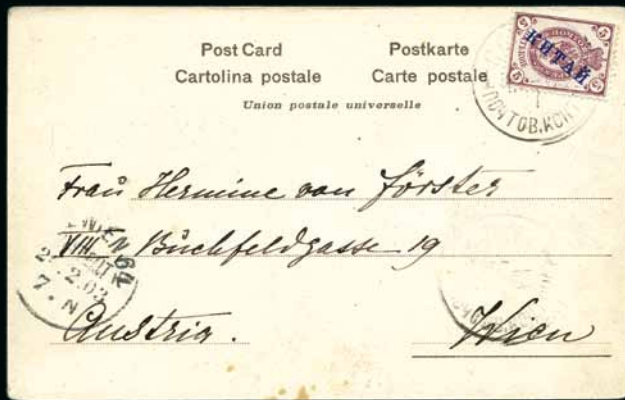 Post Card Postkarte
Cartolina postale Carte postale
Union postale universelle
5 5
КИТАЙ
5 5
ПОЧТОВ. КОНТ
Frau Hermine von Förster
VIII Buchfeldgasse 19
WIEN 64
2.03
7. N
Austria. Wien